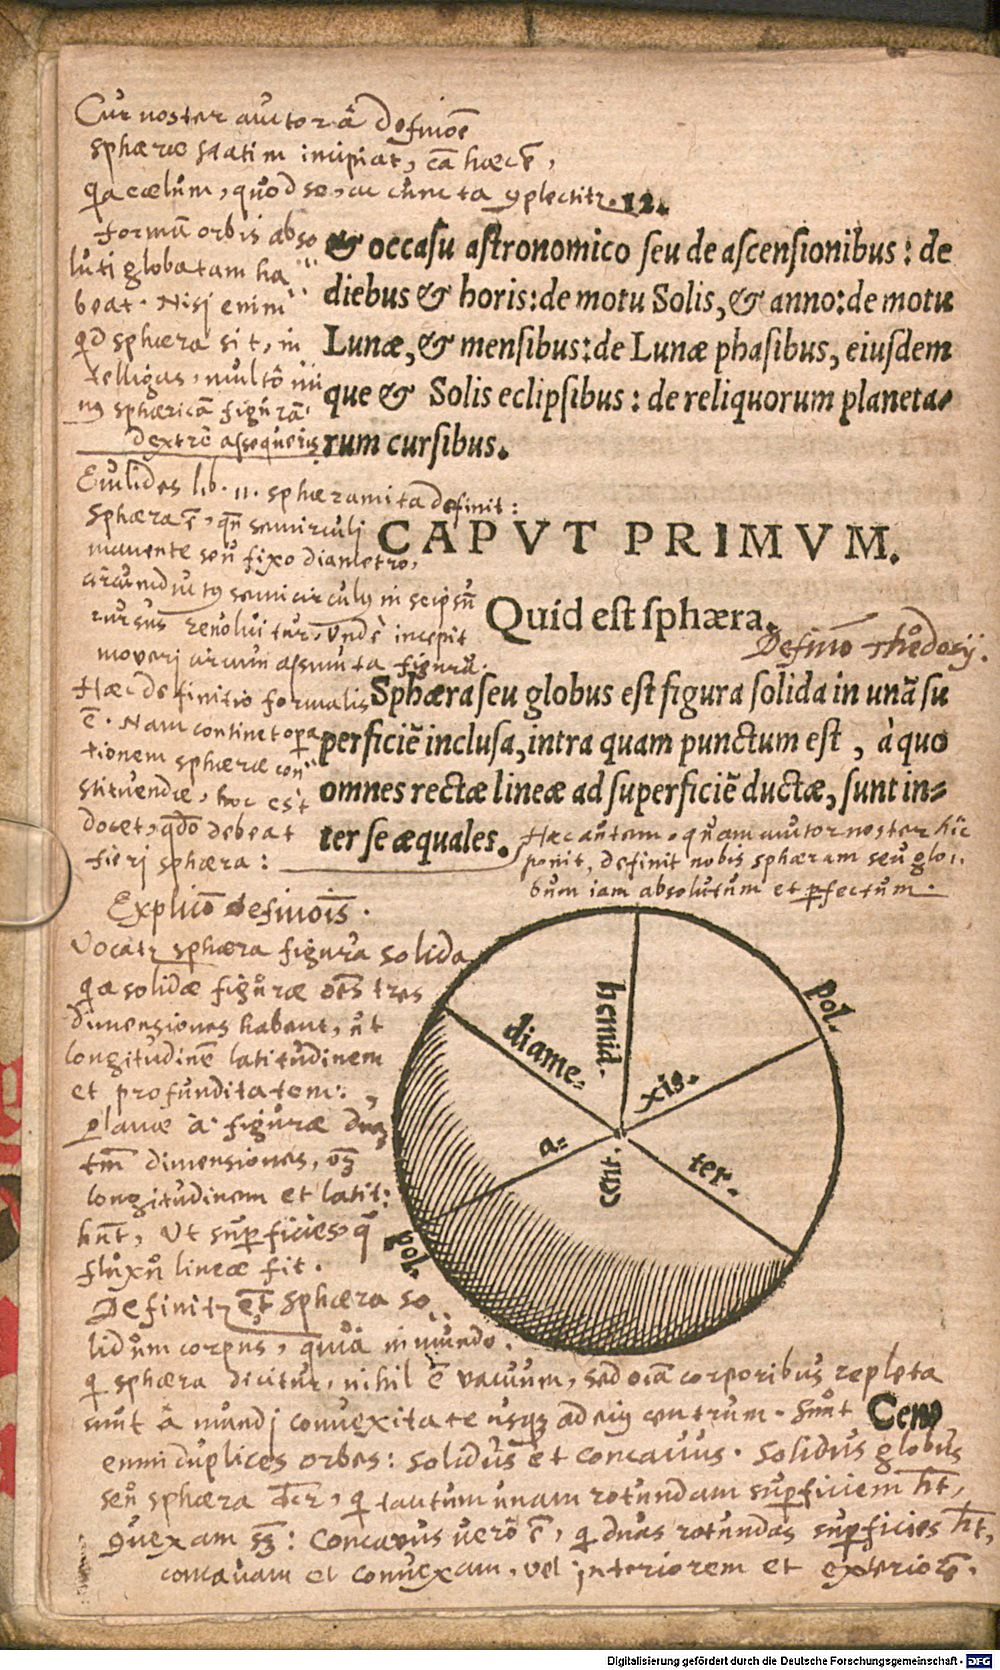 Cur noster auctor â definiõe
sphæræ statim incipiat, cã hæc ẽ,
qa cælum, quod se, ac cuncta 9plectitr
formã orbis abso
luti globatam ha
beat. Nisi enim
qd sphæra sit, in
telligas, multô mi
n9 sphæricã figurã
dextrè assequeris
12.
& occaſu aſtronomico ſeu de aſcenſionibus : de
diebus & horis: de motu Solis, & anno: de motu
Lunæ, & menſibus: de Lunæ phaſibus, eiuſdem
que & Solis eclipſibus : de reliquorum planeta-
rum curſibus.
Euclides lib. 11. sphæram ita definit:
Sphæra ẽ, qñ semicirculi
manente seu fixo diametro,
circumduct9 semicircul9 in seipsũ
rursus revoluitur, unde incepit
moveri circum assumta figura.
Hæc definitio formalis
ẽ. Nam continet opera
tionem sphæræ con
stituendæ, hoc est
docet, qdo debeat
fieri sphæra :
CAPVT PRIMVM.
Quid eſt ſphæra.
Definiõ Theodosij.
Sphæra ſeu globus eſt figura ſolida in unã ſu
perficiẽ incluſa, intra quam punctum eſt, à quo
omnes rectæ lineæ ad ſuperficiẽ ductæ, ſunt in-
ter ſe æquales.
Hæc autem, quam auctor noster hic
ponit, definit nobis sphæram seu glo
bum iam absolutum et pfectum.
Explicõ definiõis.
Vocatr sphæra figura solida
qa solidæ figuræ oẽs tres
dimensiones habent, ut
longitudinẽ latitudinem
et profunditatem:
planæ a. figuræ duas
tm dimensiones, vz
longitudinem et latit:
hnt, Ut supficies, q
fluxu lineæ fit.
Definitr et sphæra so
lidum corpus, quia in mundo
q sphæra dicitur, nihil ẽ vacuum, sed oĩa corporibus repleta
sunt â mundi convexitate usq ad ei9 centrum. Sunt
enim duplices orbes: solidus et concavus. Solidus globus
seu sphæra dcr, q tantum unam rotundam supficiem ht,
9vexam sz: Concavus verò ẽ, q duas rotundas supficies ht,
concavam et convexam, vel interiorem et exteriorẽ.
pol.
hemid.
diame-
xis.
a-
cent.
ter.
pol.
Cen-
Digitalisierung gefördert durch die Deutsche Forschungsgemeinschaft - DFG